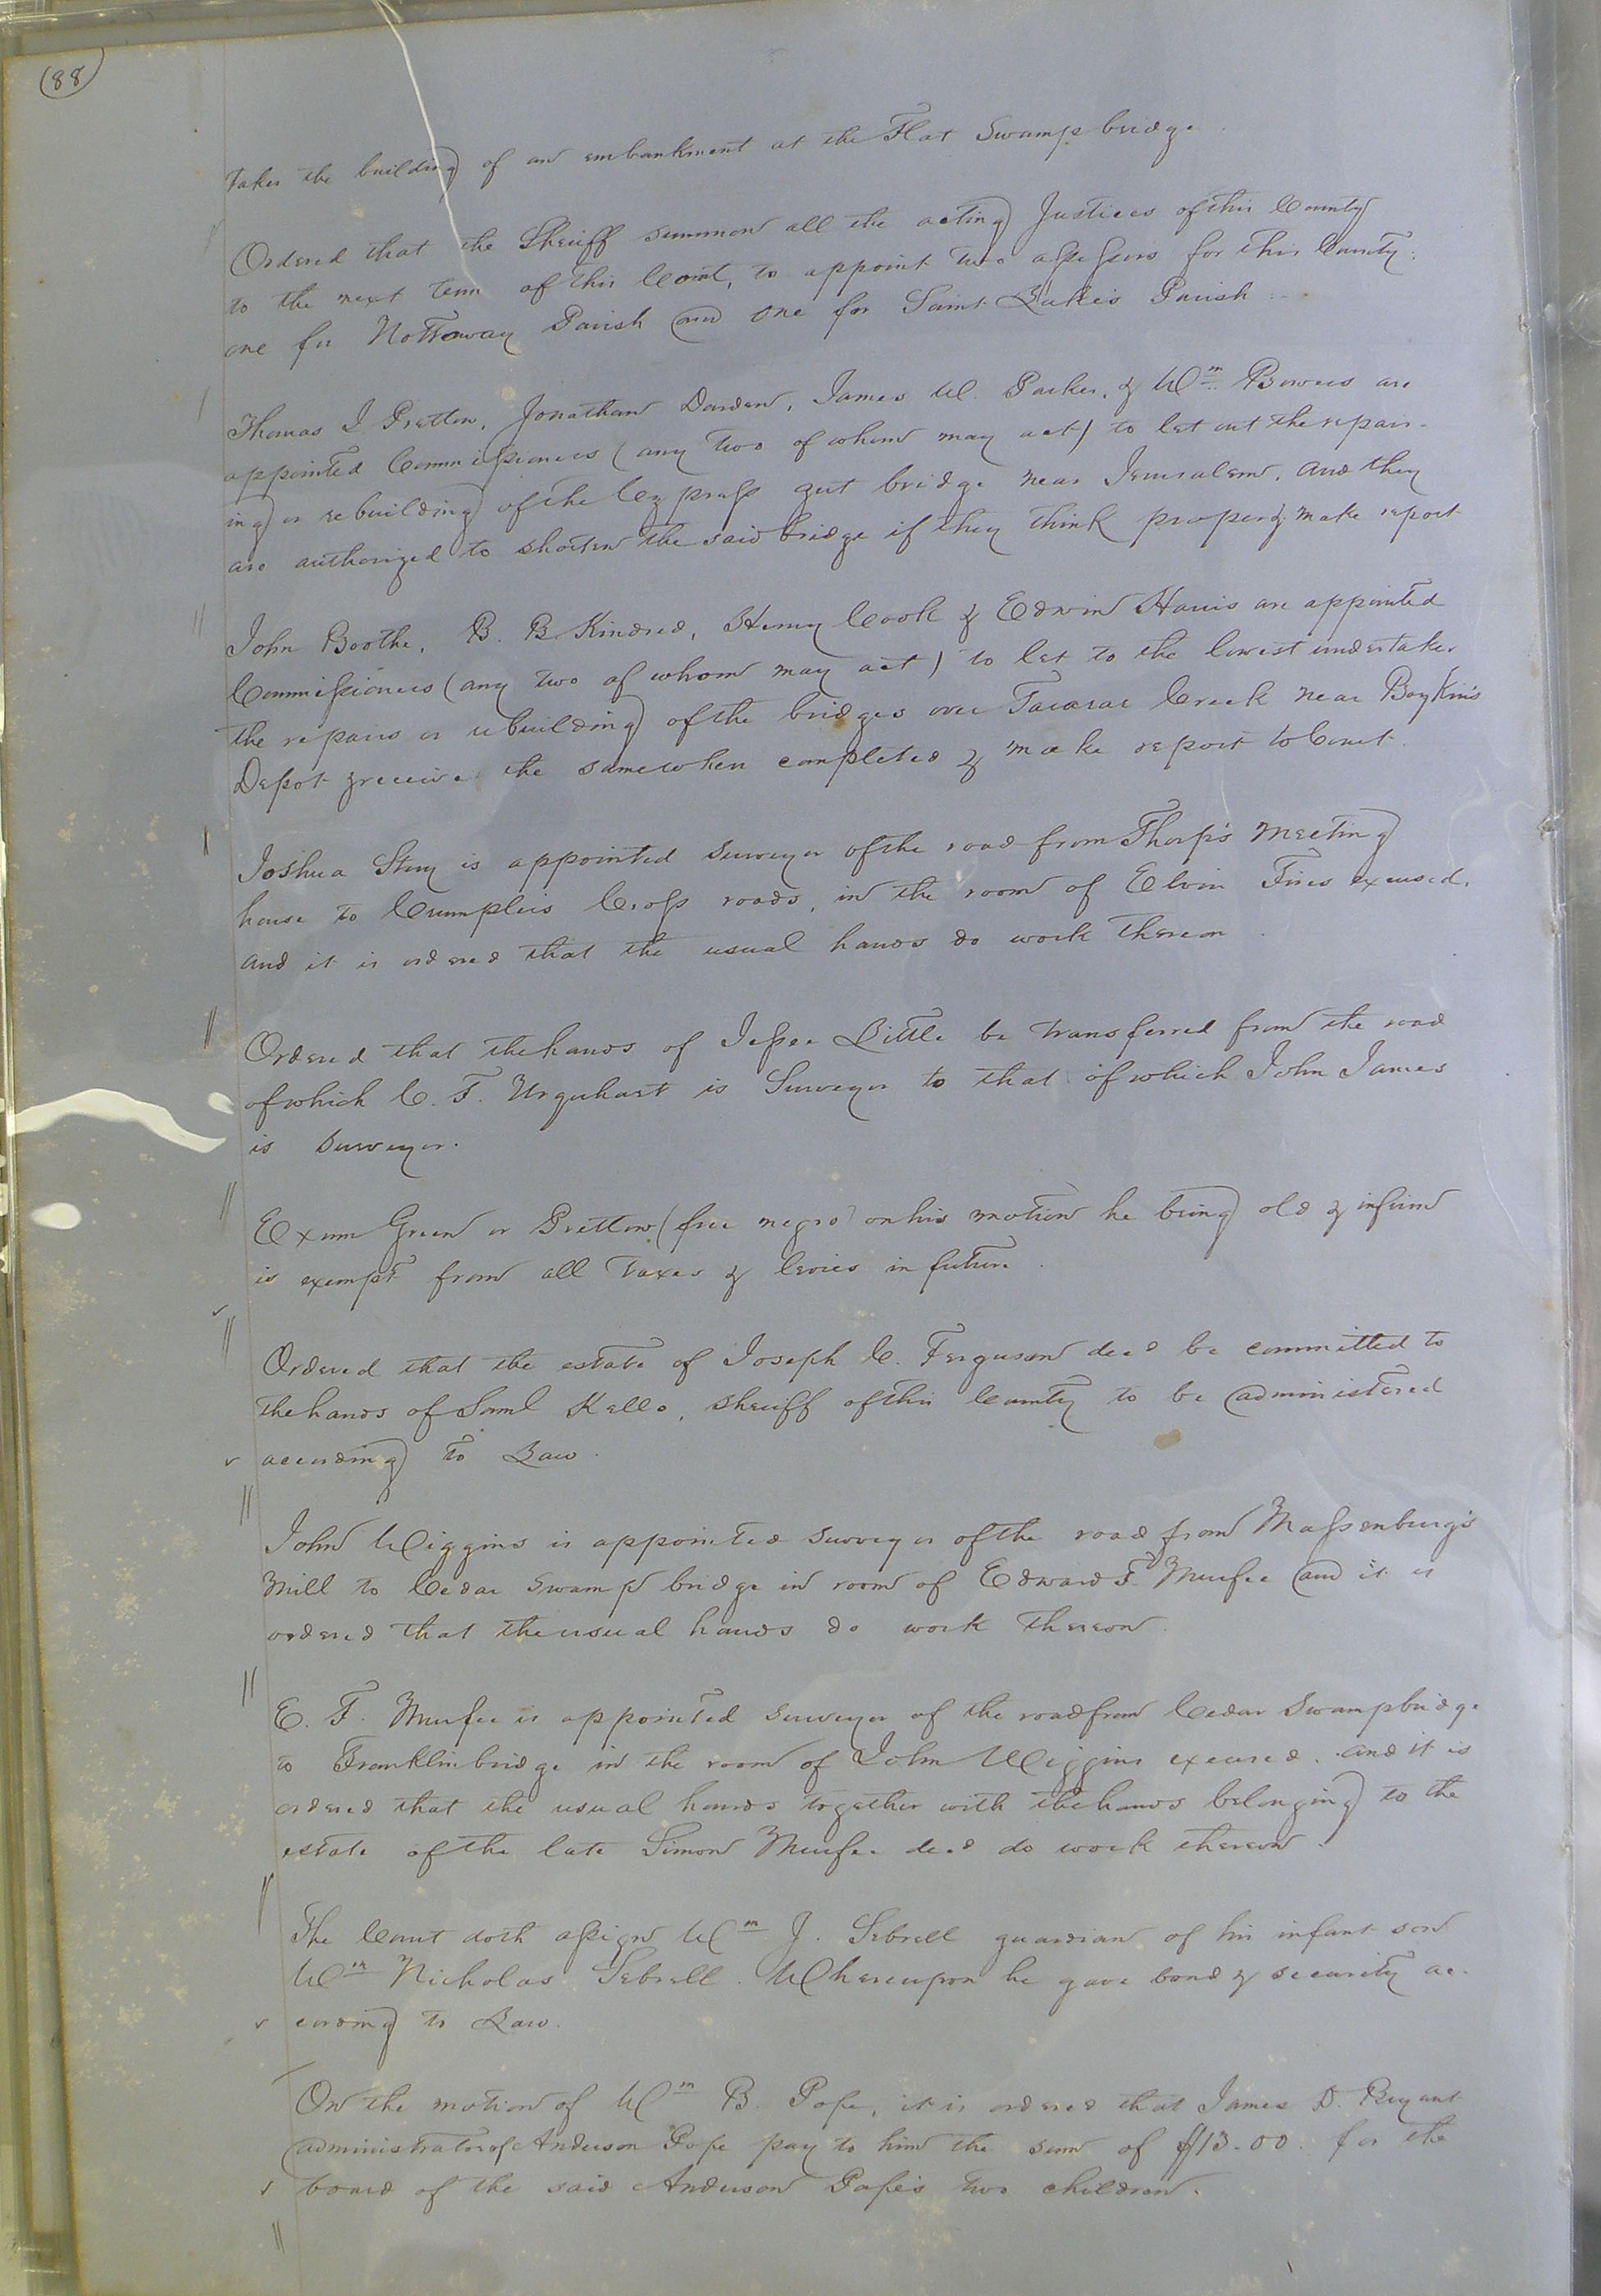 (88)
takes the building of an embankment at the Flat Swamp bridge.
Ordered that the Sheriff summon all the acting Justices of this County
to the next term of this Court, to appoint two assessors for this County:
one for Nottoway Parish and one for Saint Luke's Parish
Thomas J. Pretlow, Jonathan Darden, James W. Parker, & Wm Bowers are
appointed Commissioners (any two of whom may act) to let out the repair-
ing or rebuilding of the Cypress gut bridge near Jerusalem, and they
are authorized to shorten the said bridge if they think proper & make report
John Boothe, B. B. Kindred, Henry Cook & Edwin Harris are appointed
Commissioners (any two of whom may act) to let to the lowest undertaker
the repairs or rebuilding of the bridges over Tararae Creek near Boykin's
Depot & receive the same when completed & make report to Court.
Joshua Story is appointed surveyor of the road from Thorp's Meeting
house to Crumpler's Cross roads, in the room of Elvin excused,
and it is ordered that the usual hands do work thereon.
Ordered that the hands of Jesse Little be transferred from the road
of which C. F. Urquhart is Surveyor to that of which John James
is Surveyor.
Exum Green or Pretlow (free negro) on his motion he being old & infirm
is exempt from all Taxes & levies in future.
Ordered that the estate of Joseph C. Ferguson decd be committed to
the hands of Saml Kello, sheriff of this County to be administered
according to Law.
John Wiggins is appointed surveyor of the road from Massenburg's
Mill to Cedar Swamp bridge in room of Edward F. Murfee and it is
ordered that the usual hands do work thereon.
E. F. Murfee is appointed surveyor of the road from Cedar Swamp bridge
to Franklin bridge in the room of John Wiggins excused. and it is
ordered that the usual hands together with the hands belonging to the
estate of the late Simon Murfee decd do work thereon.
The Court doth assign Wm J. Sebrell guardian of his infant son
Wm Nicholas Sebrell. Whereupon he gave bond & security ac-
cording to Law.
On the motion of Wm B. Pope, it is ordered that James D. Bryant
administrator of Anderson Pope pay to him the sum of $13.00. for the
board of the said Anderson Pope's two children.